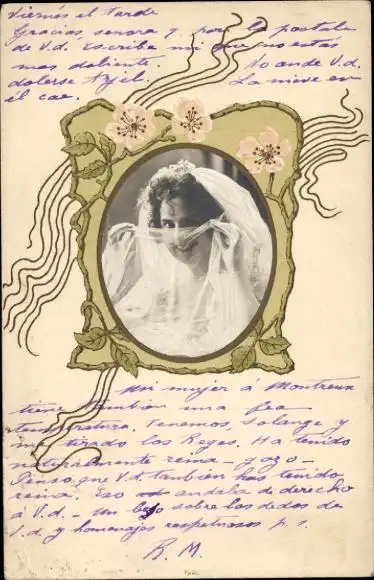 Viernés el tarde
Gracias, senora y. por la postale
de V.d. Escriba mi que no estás
mas doliente. No ande V.d.
dolerse La nieve en
él cae.
Mi mujer á Montreux
tiene tambien una fea
temperatura. Tenemos, solange y
me tirado los Reyes. Ha tenido
naturalmente reina - gozo -
Penso que V.d. tambien has tenido
reina. Eso andaba de derecho
á V.d. - Un beso sobre los dedos de
V.d. y homenajes respetuosos p. s.
R. M.